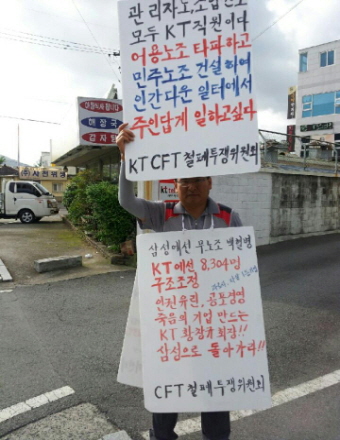 관리자노,조합간노
모두 KT직원이다
어용노조 타파하고
민주노조 건설하여
인간다운 일터에서
주인답게 일하고싶다
KT CFT 철폐투쟁위원회
해장국
감자탕
삼성에선 무노조 백혈병
KT에선 8,304명
구조조정
인권유린, 공포경영
죽음의 기업 만드는
KT 황창규회장!!
삼성으로 돌아가라!!
CFT 철폐투쟁위원회